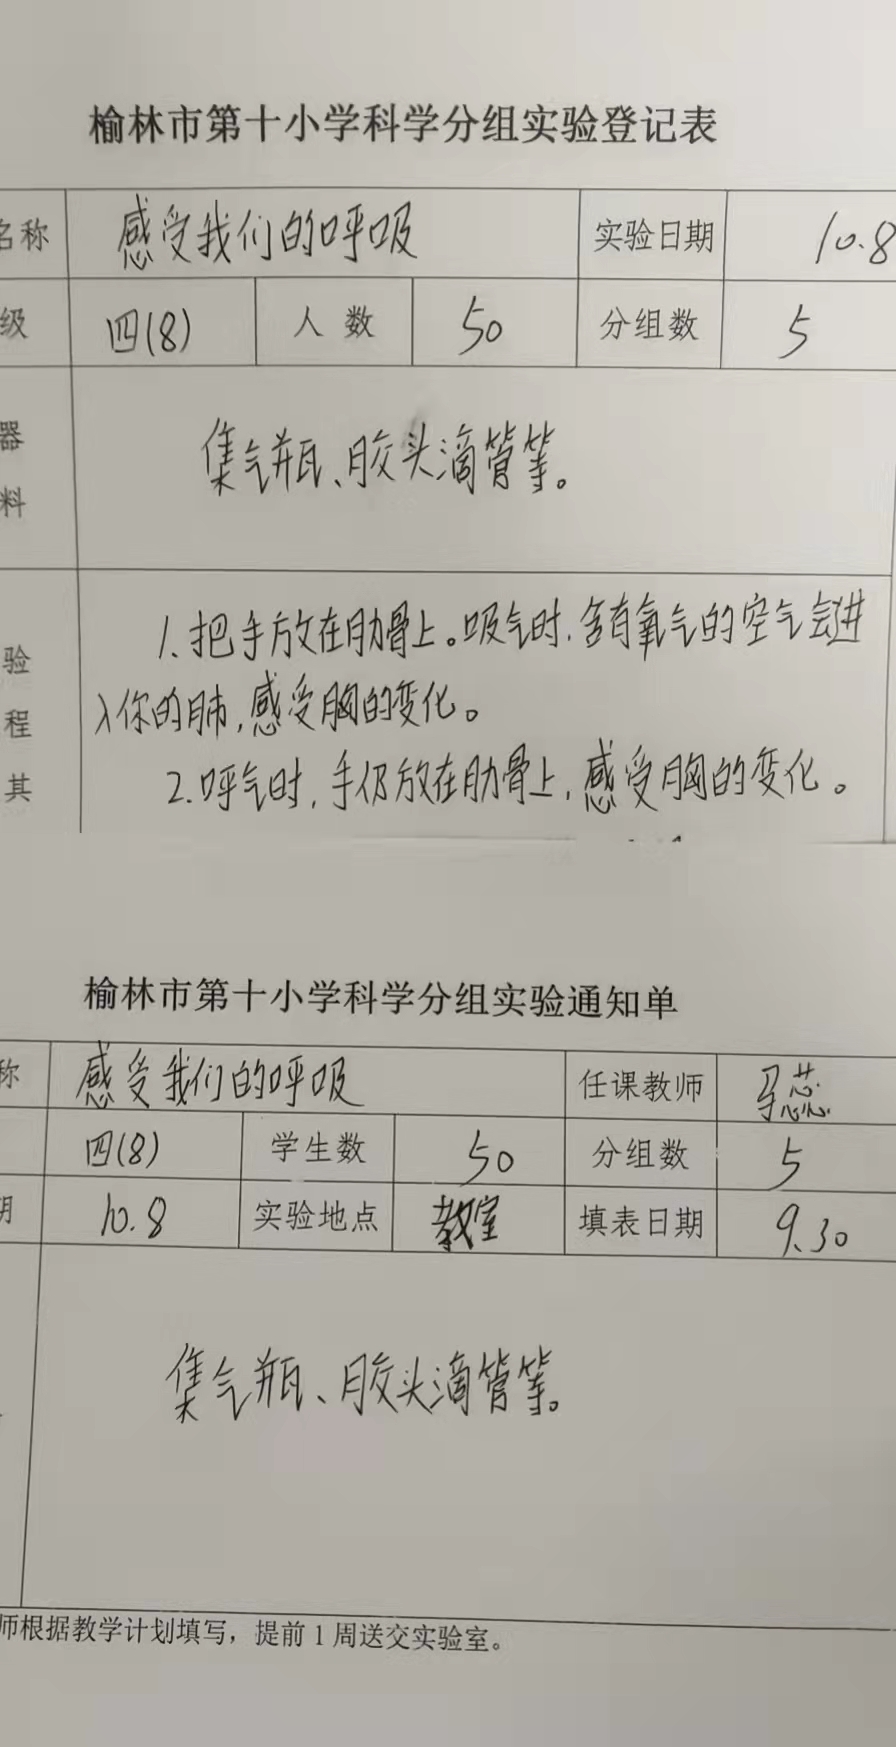 榆林市第十小学科学分组实验登记表
名称 感受我们的呼吸 实验日期 10.8
级 四(8) 人数 50 分组数 5
器
料
集气瓶、胶头滴管等。
验
程
其
1.把手放在肋骨上。吸气时,含有氧气的空气会进
入你的肺,感受胸的变化。
2.呼气时,手仍放在肋骨上,感受胸的变化。
榆林市第十小学科学分组实验通知单
称 感受我们的呼吸 任课教师 马蕊
四(8) 学生数 50 分组数 5
期 10.8 实验地点 教室 填表日期 9.30
集气瓶、胶头滴管等。
师根据教学计划填写，提前1周送交实验室。